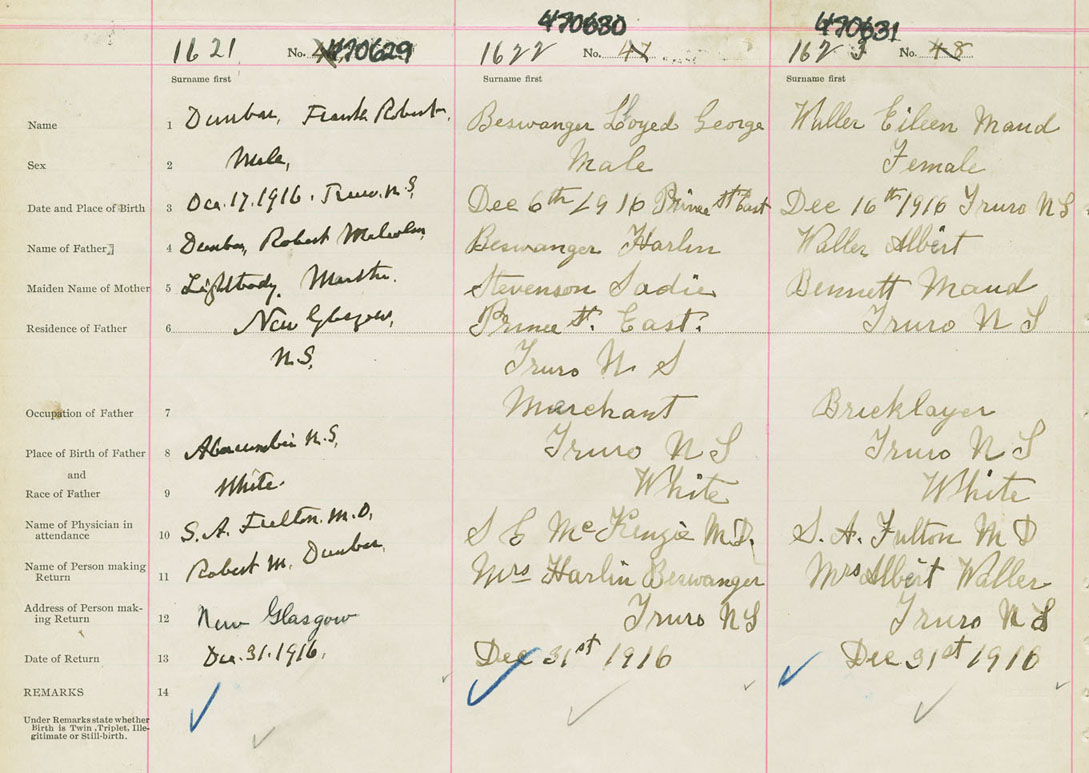 470630 470631
1621 No. 470629 1622 No. 47 1623 No. 48
Surname first Surname first Surname first
Name 1 Dunbar, Frank Robert. Beswanger Lloyed George Waller Eileen Maud
Sex 2 Male, Male Female
Date and Place of Birth 3 Dec. 17. 1916. Truro. N.S, Dec 6th 1916 Prince St East Dec 16th 1916 Truro N S
Name of Father 4 Dunbar, Robert Malcolm, Beswanger Harlin Waller Albert
Maiden Name of Mother 5 Lightbody, Martha. Stevenson Sadie Bennett Maud
Residence of Father 6 New Glasgow, Prince St. East. Truro N S
N.S, Truro N S
Occupation of Father 7 Merchant Bricklayer
Place of Birth of Father 8 N.S, Truro N S Truro N S
and
Race of Father 9 White. White White
Name of Physician in
attendance 10 S. A. Fulton. M.D, S E McKenzie M.D. S. A. Fulton M D
Name of Person making
Return 11 Robert M. Dunbar, Mrs Harlin Beswanger Mrs Albert Waller
Address of Person mak-
ing Return 12 New Glasgow Truro N S Truro N S
Date of Return 13 Dec. 31. 1916. Dec 31st 1916 Dec 31st 1916
REMARKS 14
Under Remarks state whether
Birth is Twin, Triplet, Ille-
gitimate or Still-birth.